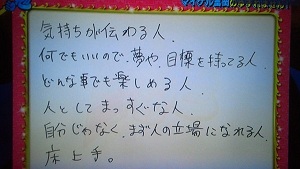 気持ちが伝わる人.
何でもいいので、夢や、目標を持ってる人.
どんな事でも楽しめる人.
人としてまっすぐな人.
自分じゃなく、まず人の立場になれる人.
床上手。